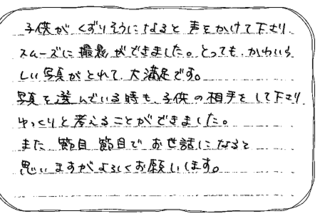 子供が、くずりそうになると声をかけて下さり、
スムーズに撮影ができました。とっても、かわいら
しい写真がとれて、大満足です。
写真を選んでいる時も、子供の相手をして下さり
ゆっくりと考えることができました。
また節目節目でお世話になると
思いますがよろしくお願いします。